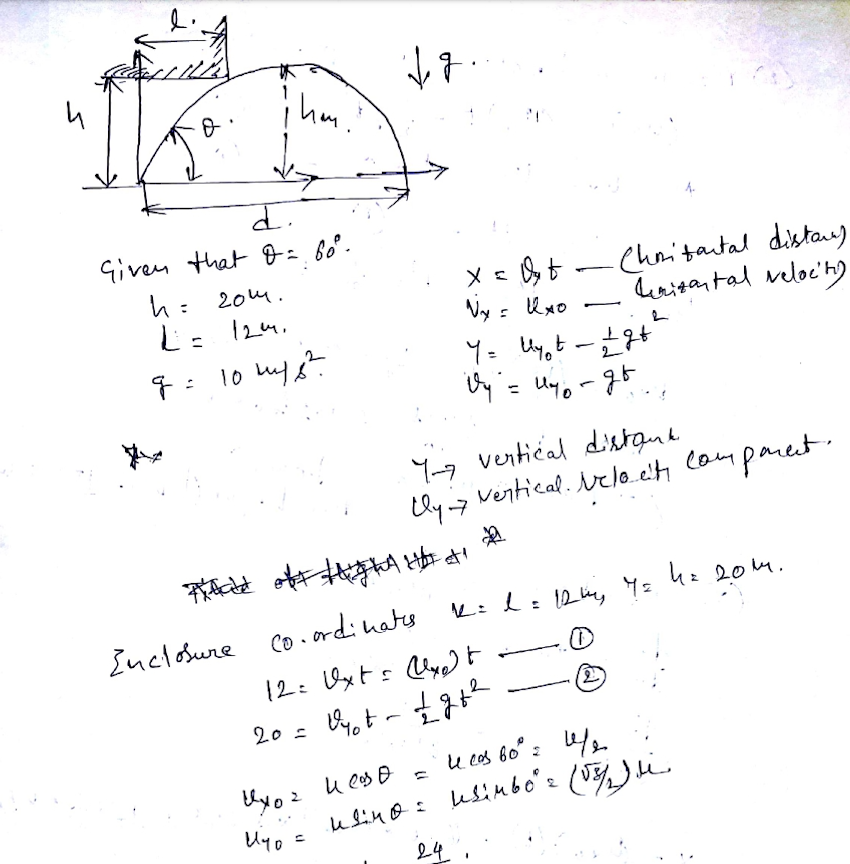 l.
g.
h
θ.
hm.
d.
Given that θ = 60°.
h = 20m.
L = 12m.
g = 10 m/s².
x = Vxt — (horizontal distance)
Vx = Ux0 — (horizontal velocity)
Y = Uy0t - ½gt²
Vy = Uy0 - gt
Y → vertical distance
Uy → vertical velocity component.
Enclosure co.ordinates x = l = 12m, Y = h = 20m.
12 = Vxt = (Ux0)t — ①
20 = Vy0t - ½gt² — ②
Ux0 = u cosθ = u cos60° = u/2
Uy0 = u sinθ = u sin60° = (√3/2)u
24